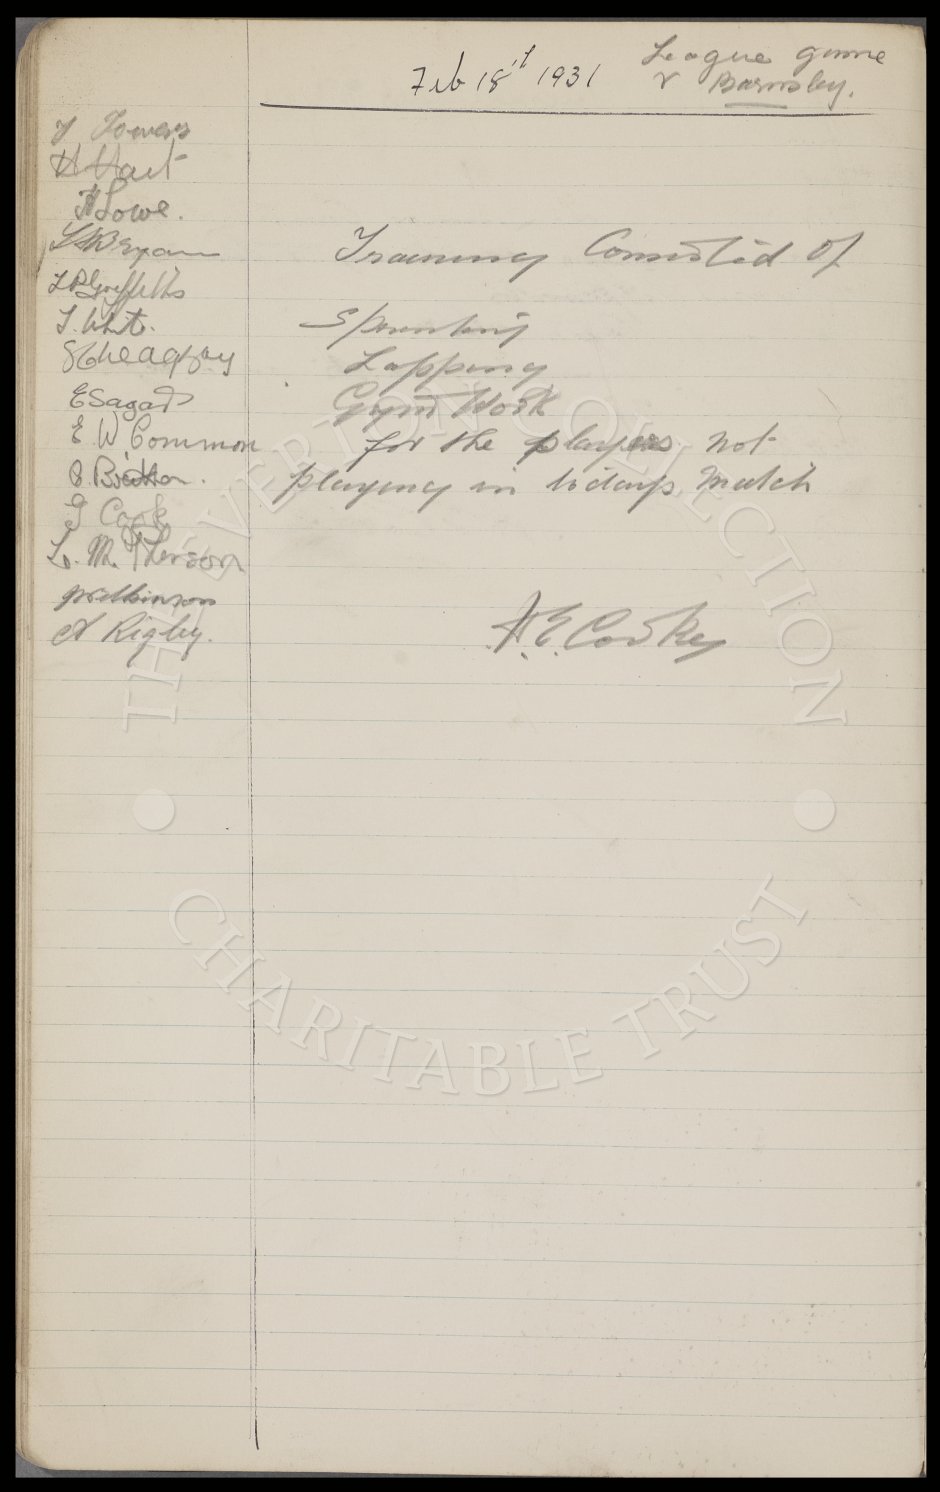 Feb 18th 1931
League game
v Barnsley.
Towers
H Hart
H Lowe.
Bryan
P Griffiths
T. White.
McGhie
E Sagar
E W Common
C. Britton.
Cook
L. McPherson
Wilkinson
A Rigby.
Training Consisted of
Sprinting
Lapping
Gym Work
for the players not
playing in todays Match
H. E. Cooke
THE EVERTON COLLECTION
CHARITABLE TRUST